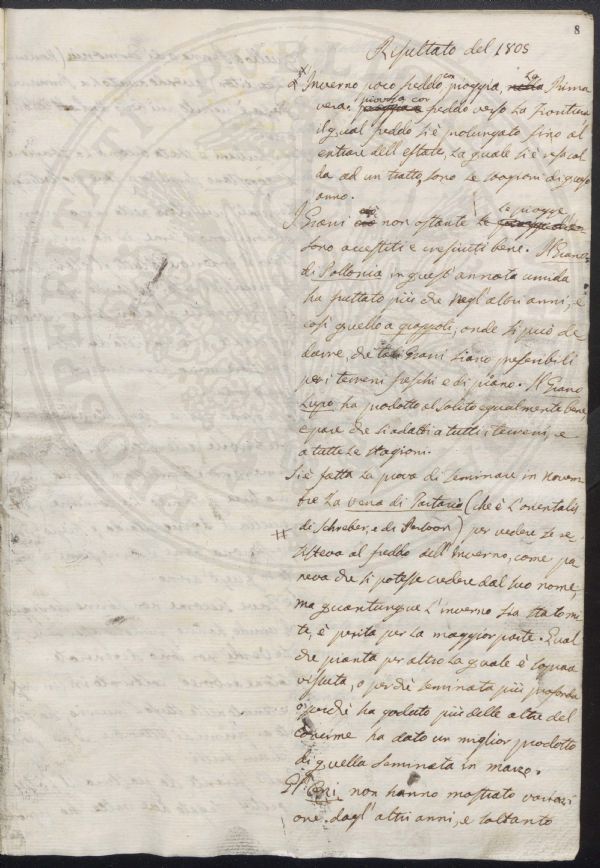 8
Risultato del 1805
Inverno poco freddo con pioggia, La Prima
vera piovosa con freddo verso La Frontura
il qual freddo si è prolungato fino al
entrare dell'estate, La quale si è riscal
da ad un tratto, sono Le stagioni di questo
anno.
I Grani ciò non ostante Le piogge
sono accestiti e cresciuti bene. Il Grano
di Pollonia in quest'annata umida
ha fruttato più che negl'altri anni, e
così quello a grappoli, onde si può de
durre, che tali Grani siano preferibili
per i terreni freschi e di piano. Il Grano
Lupo ha prodotto al solito egualmente bene,
e pare che si adatti a tutti i terreni, e
a tutte Le stagioni.
Si è fatta La prova di seminare in Novem
bre La vena di Tartaria (che è L'orientalis
di Schreber, e di Persoon) per vedere se re
sisteva al freddo dell'Inverno, come pa
reva che si potesse credere dal suo nome,
ma quantunque L'inverno sia stato mi
te, è perita per la maggior parte. Qual
che pianta per altro La quale è soprav
vissuta, o perchè seminata più profonda
o perchè ha goduto più delle altre del
concime ha dato un miglior prodotto
di quella seminata in marzo.
Gl'Orzi non hanno mostrato variazi
one dagl'altri anni, e soltanto